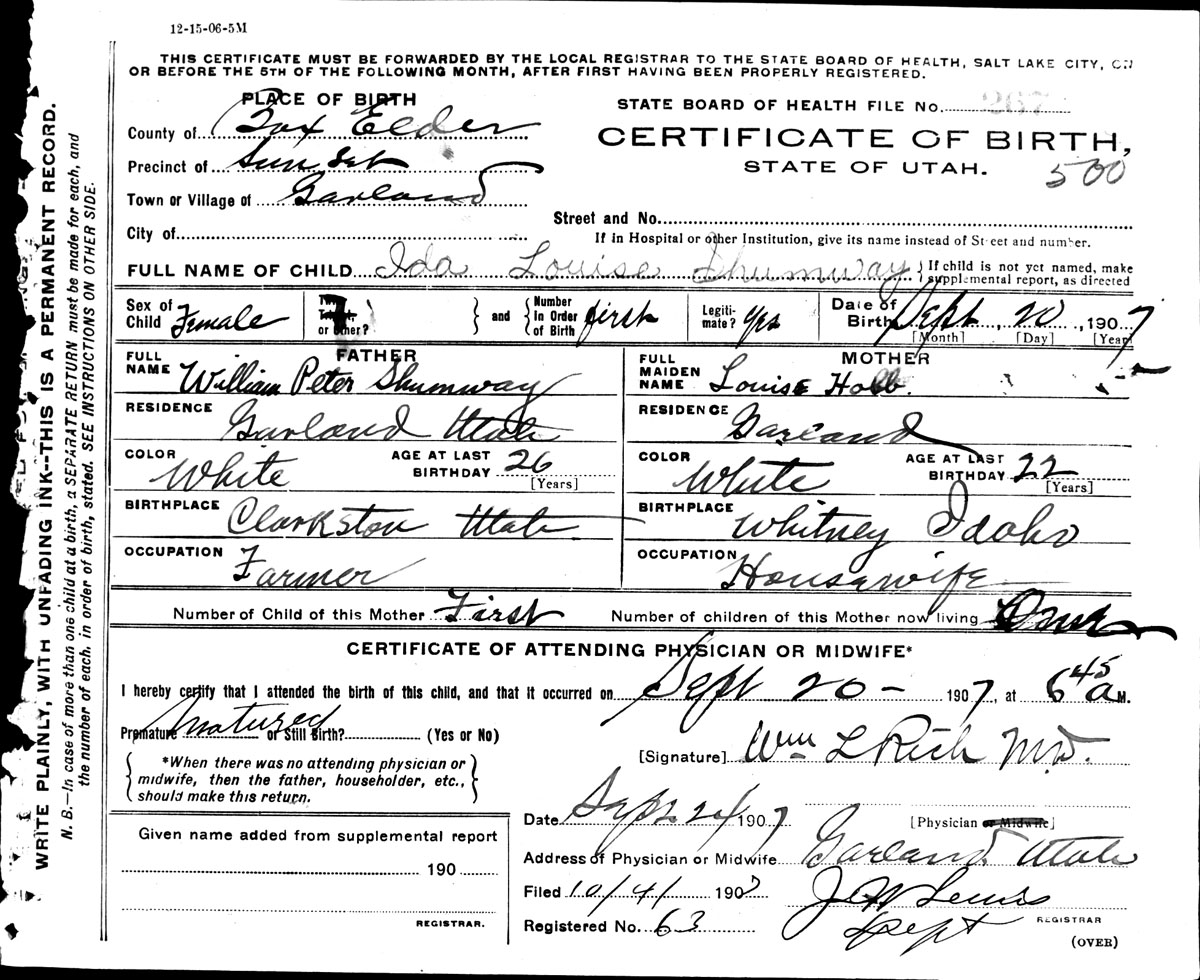 12-15-06-5M
THIS CERTIFICATE MUST BE FORWARDED BY THE LOCAL REGISTRAR TO THE STATE BOARD OF HEALTH, SALT LAKE CITY, ON
OR BEFORE THE 5TH OF THE FOLLOWING MONTH, AFTER FIRST HAVING BEEN PROPERLY REGISTERED.
WRITE PLAINLY, WITH UNFADING INK--THIS IS A PERMANENT RECORD.
N. B.—In case of more than one child at a birth, a SEPARATE RETURN must be made for each, and
the number of each, in order of birth, stated. SEE INSTRUCTIONS ON OTHER SIDE.
PLACE OF BIRTH
County of Box Elder
Precinct of Sun Set
Town or Village of Garland
City of
STATE BOARD OF HEALTH FILE No. 267
CERTIFICATE OF BIRTH,
STATE OF UTAH.
500
Street and No.
If in Hospital or other Institution, give its name instead of Street and number.
FULL NAME OF CHILD Ida Louise Shumway } If child is not yet named, make
supplemental report, as directed
Sex of Child Female
Twin, Triplet, or Other? } and { Number In Order of Birth first
Legiti-mate? Yes
Date of Birth Sept, 20, 1907
[Month] [Day] [Year]
FATHER
FULL NAME William Peter Shumway
RESIDENCE Garland Utah
COLOR White AGE AT LAST BIRTHDAY 26
[Years]
BIRTHPLACE Clarkston Utah
OCCUPATION Farmer
MOTHER
FULL MAIDEN NAME Louise Hobb.
RESIDENCE Garland
COLOR White AGE AT LAST BIRTHDAY 22
[Years]
BIRTHPLACE Whitney Idaho
OCCUPATION Housewife
Number of Child of this Mother First Number of children of this Mother now living One
CERTIFICATE OF ATTENDING PHYSICIAN OR MIDWIFE*
I hereby certify that I attended the birth of this child, and that it occurred on Sept 20 - 1907, at 6 45 a M.
Premature matured or Still Birth? (Yes or No)
*When there was no attending physician or
midwife, then the father, householder, etc.,
should make this return.
[Signature] Wm L Rich M.D.
[Physician or Midwife]
Date Sept 24 1907
Address of Physician or Midwife Garland Utah
Filed 10/4/ 1907 J W Lewis
Registered No. 63 Dept REGISTRAR
(OVER)
Given name added from supplemental report
190
REGISTRAR.